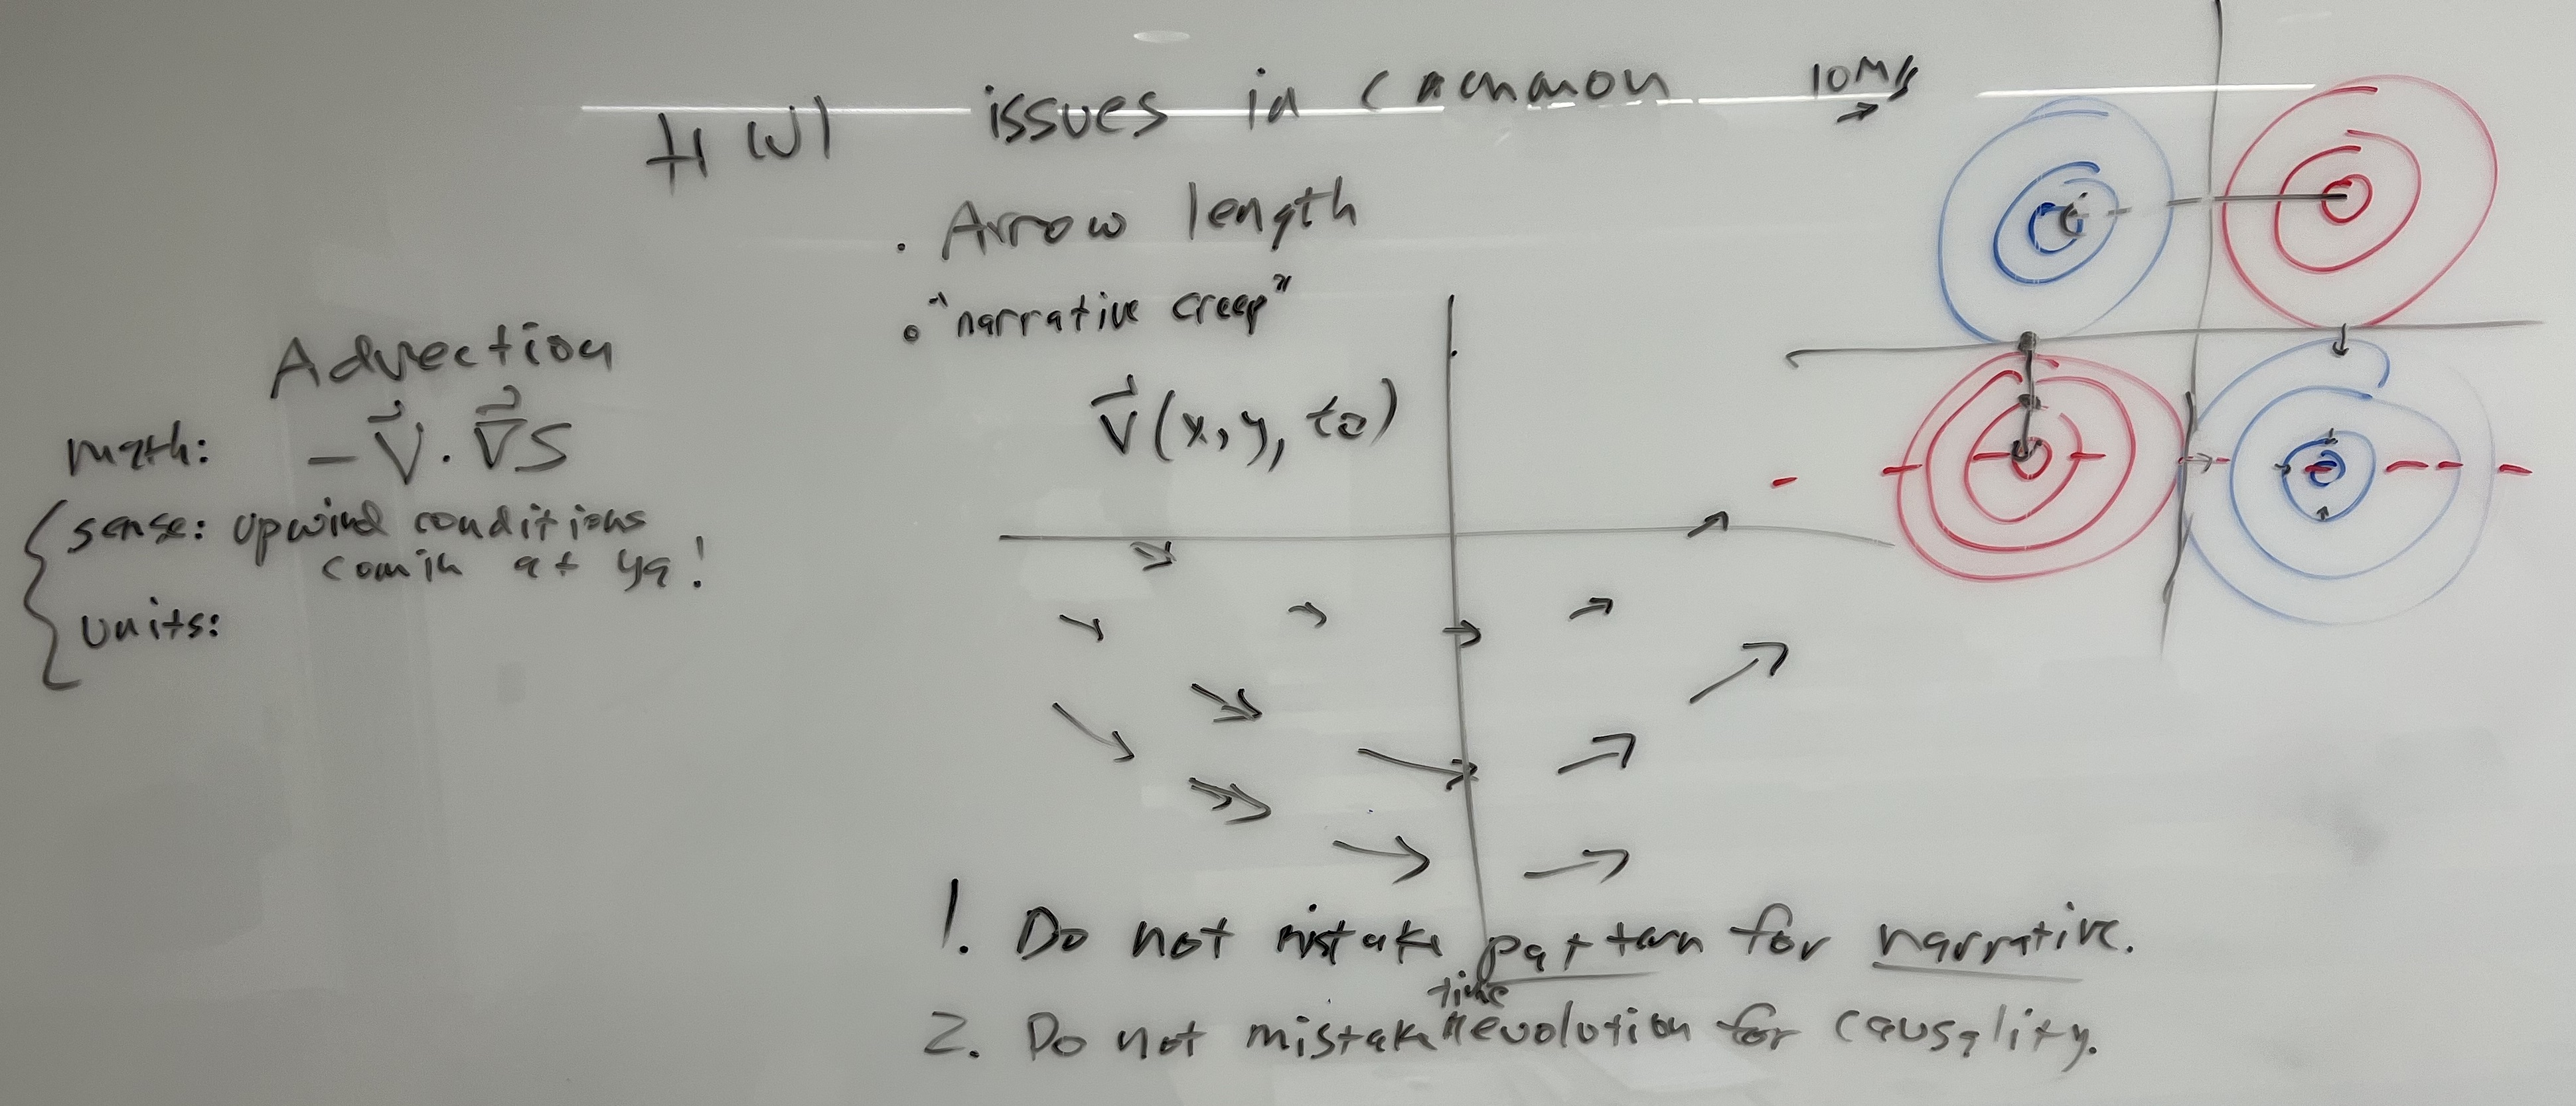 HW1 issues in common 10 m/s
. Arrow length
• "narrative creep"
Advection
math: -V⃗·∇⃗S
sense: upwind conditions
comin at ya!
units:
V⃗(x, y, t₀)
1. Do not mistake pattern for narrative.
time
2. Do not mistake evolution for causality.